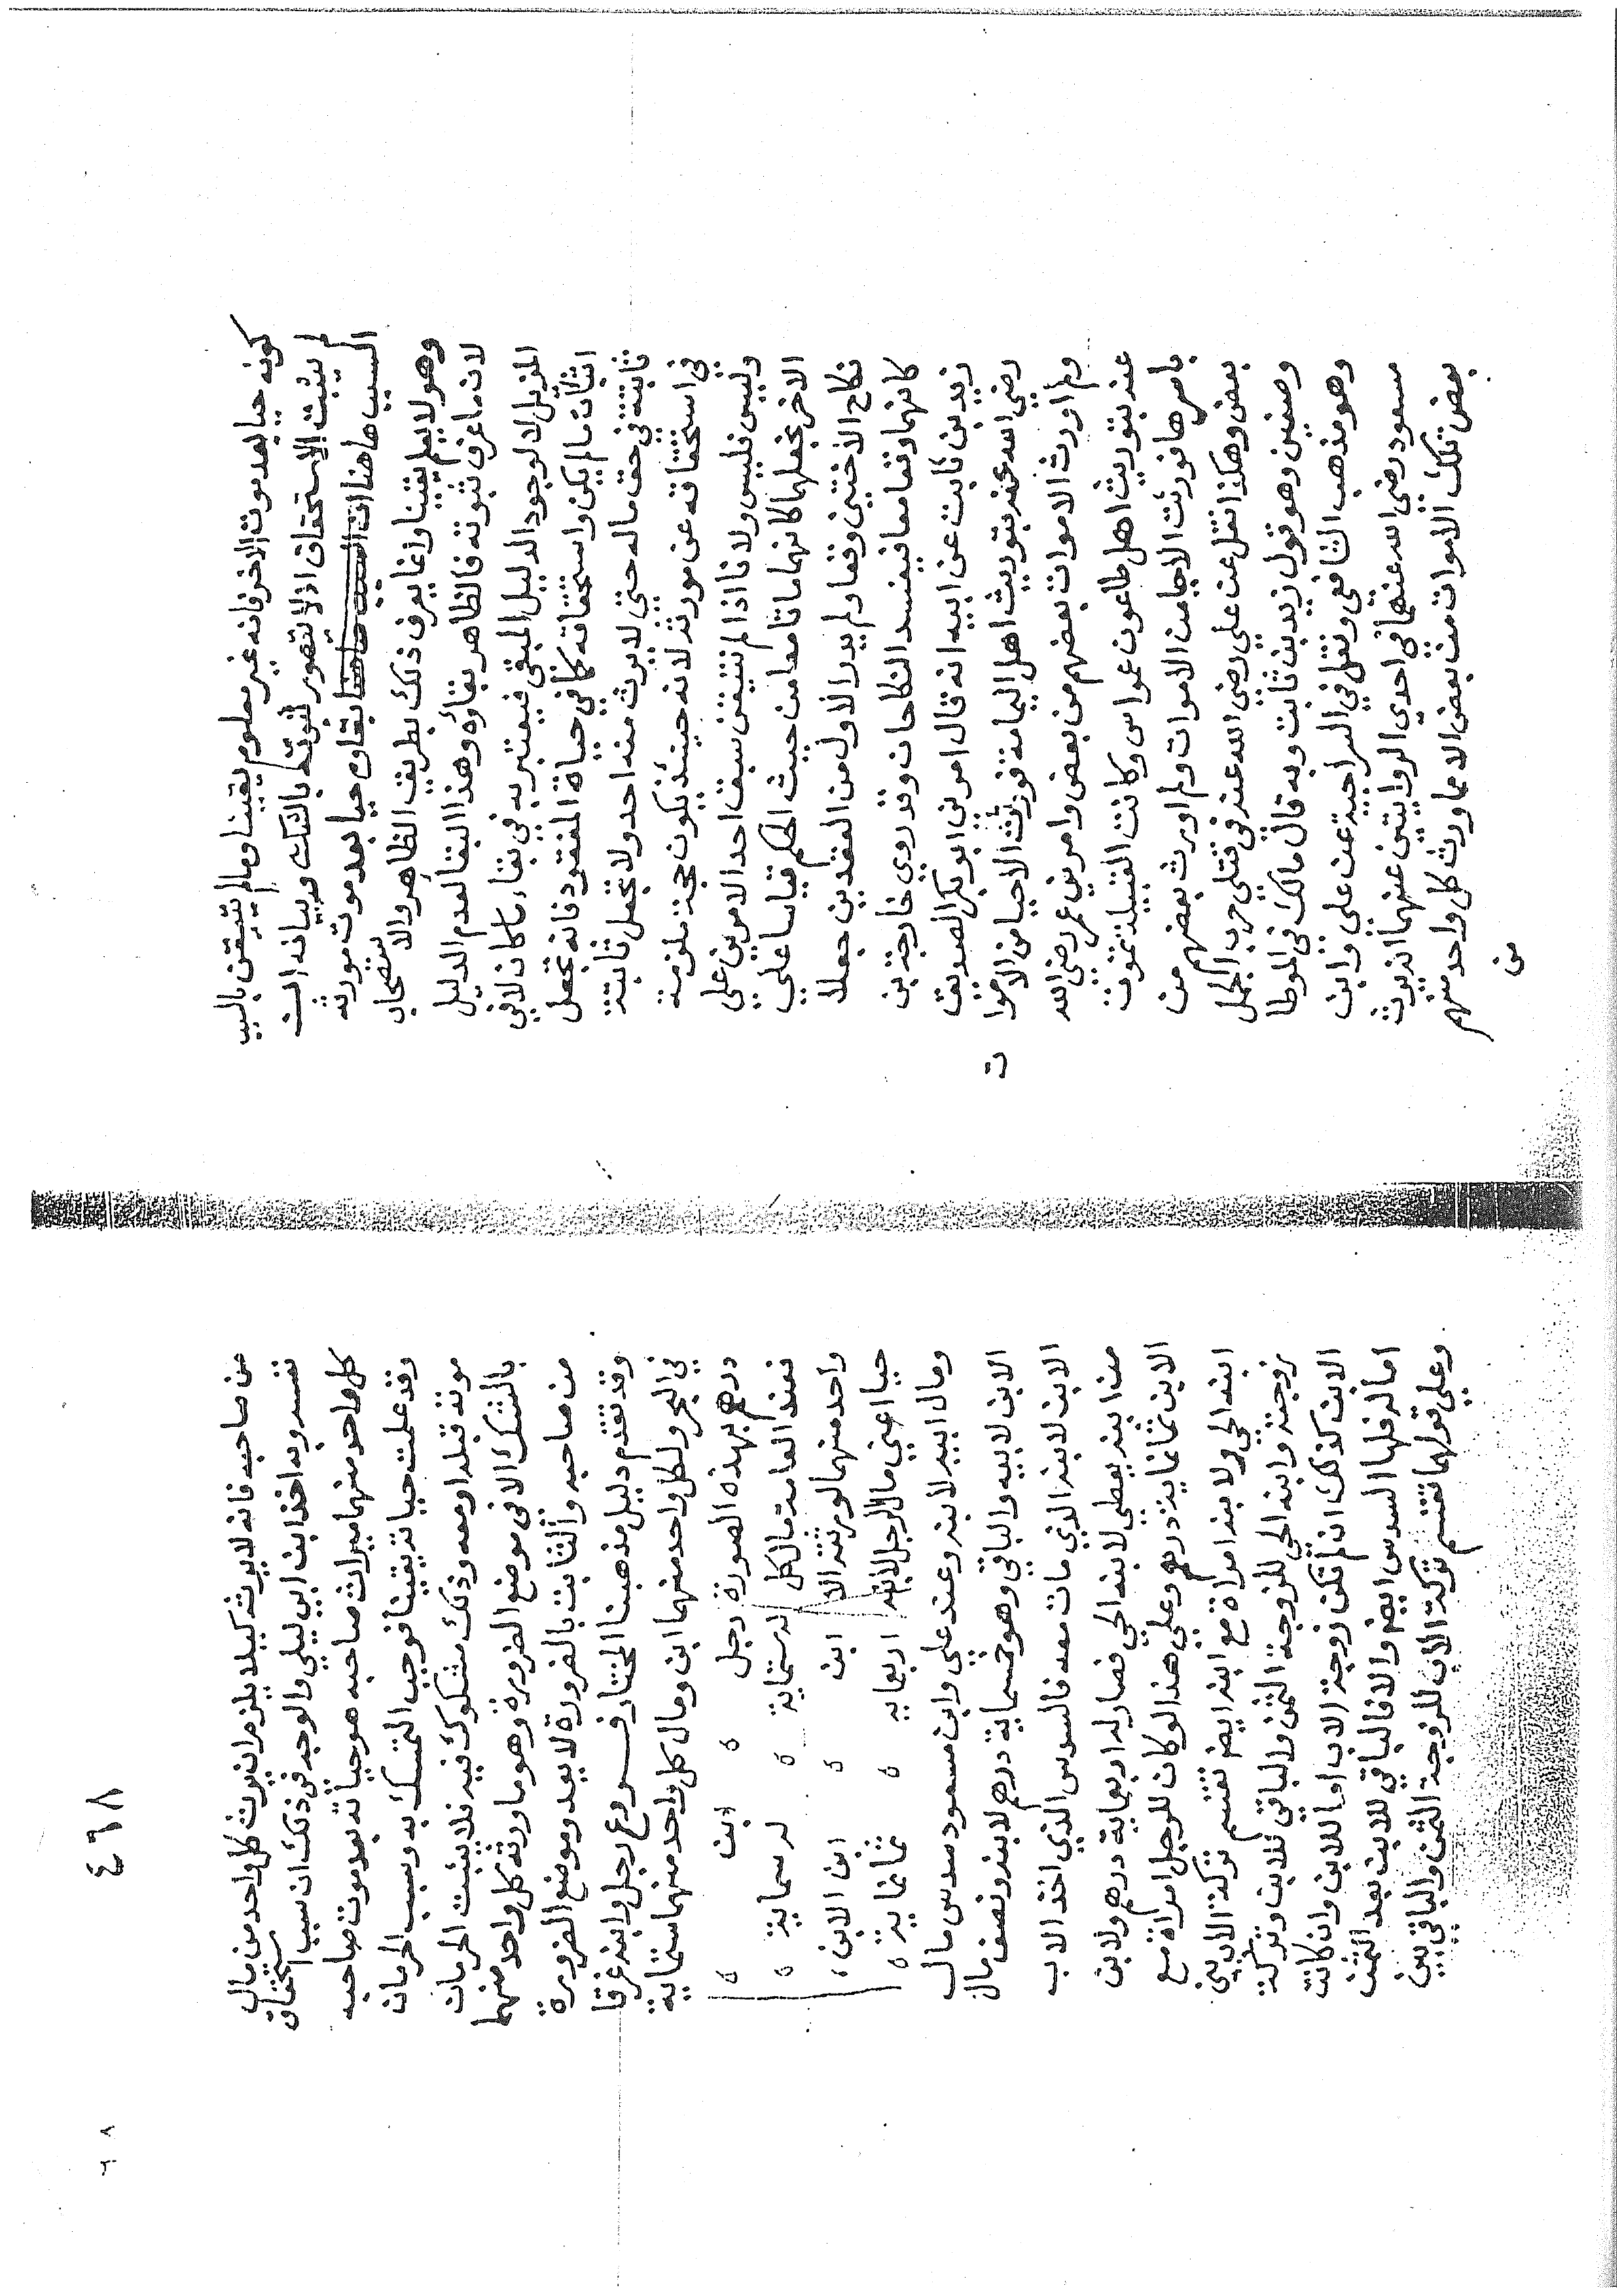 كونه حيا بعد موت الاخر فانه غير معلوم يقينا ومالم يتيقن بالسبب
لم يثبت الاستحقاق اذ لا يتصور ثبوته بالشك وبيانه ان
السبب هاهنا بقاوه حيا بعد موت مورثه
وهو لا يعلم يقينا وانما يعرف ذلك بطريق الظاهر والاستصحاب
لان ما عرف ثبوته فالظاهر بقاؤه وهذا البقا لعدم الدليل
المزيل لا لوجود الدليل المبقي فيعتبر به في بقاء ما كان لا في
اثبات مالم يكن واستحقاقه كما في حياة المفقود فانه تجعل
ثابتة في حق ماله حتي لا يرث منه احد ولا تجعل ثابتة
في استحقاقه عن مورثه لانه حينئذ يكون حجة ملزمة
وليس فليس ولانا اذا لم نتيقن سبق احد الامرين علي
الاخر نجعلهما كانهما ماتا معا من حيث الحكم قياسا علي
نكاح الاختين وقفا ولم يدر الاول من العقدين جعلا
كانهما وقعا معا فيفسد النكاحان وقد روي خارجة بن
زيد بن ثابت عن ابيه انه قال امرني ابو بكر الصديق
رضي الله عنه بتوريث اهل اليمامة فورثت الاحيا من الاموات
ولم اورث الاموات بعضهم من بعض وامرني عمر رضي الله
عنه بتوريث اهل طاعون عمواس وكانت القبيلة تموت
باسرها فورثت الاحيا من الاموات ولم اورث بعضهم من
بعض وهكذا نقل عن علي رضي الله عنه في قتلي حرب الجمل
وصفين وهو قول زيد بن ثابت وبه قال مالك في الموطا
وهو مذهب الشافعي ونقل في السراجية عن علي وابن
مسعود رضي الله عنهما في احدي الروايتين عنهما انه يرث
بعض تلك الاموات من بعض الا مما ورث كل واحد منهم
من
٤٦٨
من صاحبه فانه لايرث كيلا يلزم ان يرث كل واحد من مال
نفسه وبه اخذ ابن ابي ليلي والوجه في ذلك ان سبب استحقاق
كل واحد منهما ميراث صاحبه هو حياته بعد موت صاحبه
وقد علمت حياته يقينا فوجب التمسك به وسبب الحرمان
موته قبله او معه وذلك مشكوك فيه فلا يثبت الحرمان
بالشك الا في موضع الضرورة وهو ما ورثه كل واحد منهما
من صاحبه والثابت بالضرورة لا يعدو موضع الضرورة
وقد تقدم دليل مذهبنا المختار فروع رجل وابنه غرقا
في البحر ولكل واحد منهما ابن ومال كل واحد منهما ستماية
درهم بهذه الصورة رجل ابن
فعند العامة مال كل له ستماية له ستماية
واحد منهما لورثته الا ابن ابن الابن
حيا اعني مال الرجل لابنه اربعماية ثمانماية
ومال ابيه لابنه وعند علي وابن مسعود سدس مال
الابن لابيه والباقي وهو خمسماية درهم لابنه ونصف مال
الاب لابنه الذي مات معه فالسدس الذي اخذ الاب
من ابنه يعطي لابنه الحي فصار له اربعماية درهم ولابن
الابن ثمانماية درهم وعلي هذا لو كان للرجل امراة مع
ابنه الحي ولابنه امراة مع ابنه ايضا تقسم تركة الاب بين
زوجته وابنه الحي للزوجة الثمن والباقي للابن وتركة
الابن كذلك ان لم تكن زوجة الاب اما للابن وان كانت
اما له فلها السدس ايضا والا فالباقي للابن بعد الثمن
وعلي قولهما تقسم تركة الاب للزوجة الثمن والباقي بين